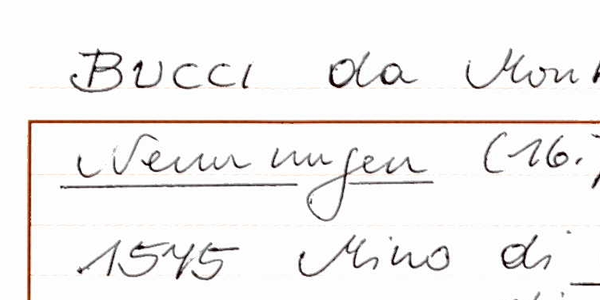 BUCCI da Mon
Nennungen (16.
1545 Mino di